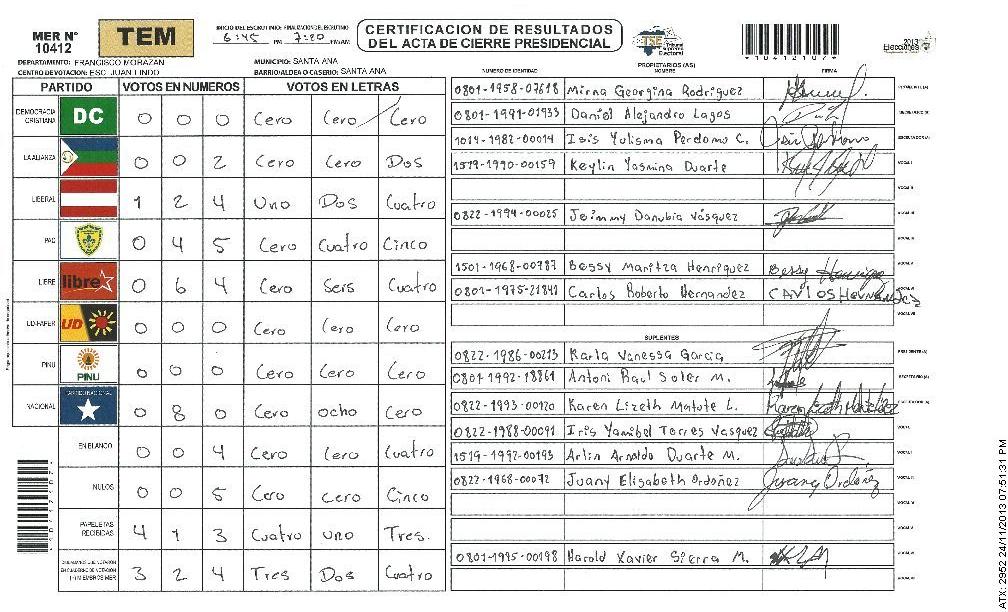 MER Nº
10412
TEM
INICIO DEL ESCRUTINIO: FINALIZACION DEL ESCRUTINIO
6:45 PM 7:20 PM/AM
CERTIFICACION DE RESULTADOS
DEL ACTA DE CIERRE PRESIDENCIAL
TSE Tribunal Supremo Electoral
2013
Elecciones
*1041210?*
DEPARTAMENTO: FRANCISCO MORAZAN
MUNICIPIO: SANTA ANA
CENTRO DE VOTACION: ESC. JUAN LINDO
BARRIO/ALDEA O CASERIO: SANTA ANA
PARTIDO VOTOS EN NUMEROS VOTOS EN LETRAS
DEMOCRACIA CRISTIANA DC 0 0 0 Cero Cero Cero
LA ALIANZA 0 0 2 Cero Cero Dos
LIBERAL 1 2 4 Uno Dos Cuatro
PAC 0 4 5 Cero Cuatro Cinco
LIBRE libre 0 6 4 Cero Seis Cuatro
UD-FAPER UD 0 0 0 Cero Cero Cero
PINU PINU 0 0 0 Cero Cero Cero
NACIONAL PARTIDO NACIONAL 0 8 0 Cero ocho Cero
EN BLANCO 0 0 4 Cero Cero Cuatro
NULOS 0 0 5 Cero Cero Cinco
PAPELETAS RECIBIDAS 4 1 3 Cuatro uno Tres.
3 2 4 Tres Dos Cuatro
PROPIETARIOS (AS)
NUMERO DE IDENTIDAD NOMBRE FIRMA
0801-1958-07618 Mirna Georgina Rodriguez PRESIDENTE (A)
0801-1991-01933 Daniel Alejandro Lagos SECRETARIO (A)
1014-1982-00014 Isis Yulisma Perdomo C. ESCRUTADOR (A)
1519-1990-00159 Keylin Yasmina Duarte VOCAL I
VOCAL II
0822-1994-00025 Jeimmy Danubia Vásquez VOCAL III
VOCAL IV
1501-1968-00787 Bessy Maritza Henriquez Bessy Henriquez VOCAL V
0801-1975-21841 Carlos Roberto Hernandez CARLOS HERNANDEZ VOCAL VI
VOCAL VII
SUPLENTES
0822-1986-00213 Karla Vanessa Garcia PRESIDENTE (A)
0801-1992-18861 Antoni Raul Soler M. SECRETARIO (A)
0822-1993-00120 Karen Lizeth Matute L. ESCRUTADOR (A)
0822-1988-00091 Iris Yamibel Torres Vasquez VOCAL I
1519-1992-00193 Arlin Arnaldo Duarte M.
0822-1968-00072 Juany Elisabeth Ordoñez Juany Ordoñez
0801-1995-00198 Harold Xavier Sierra M.
ATX: 2952 24/11/2013 07:51:31 PM